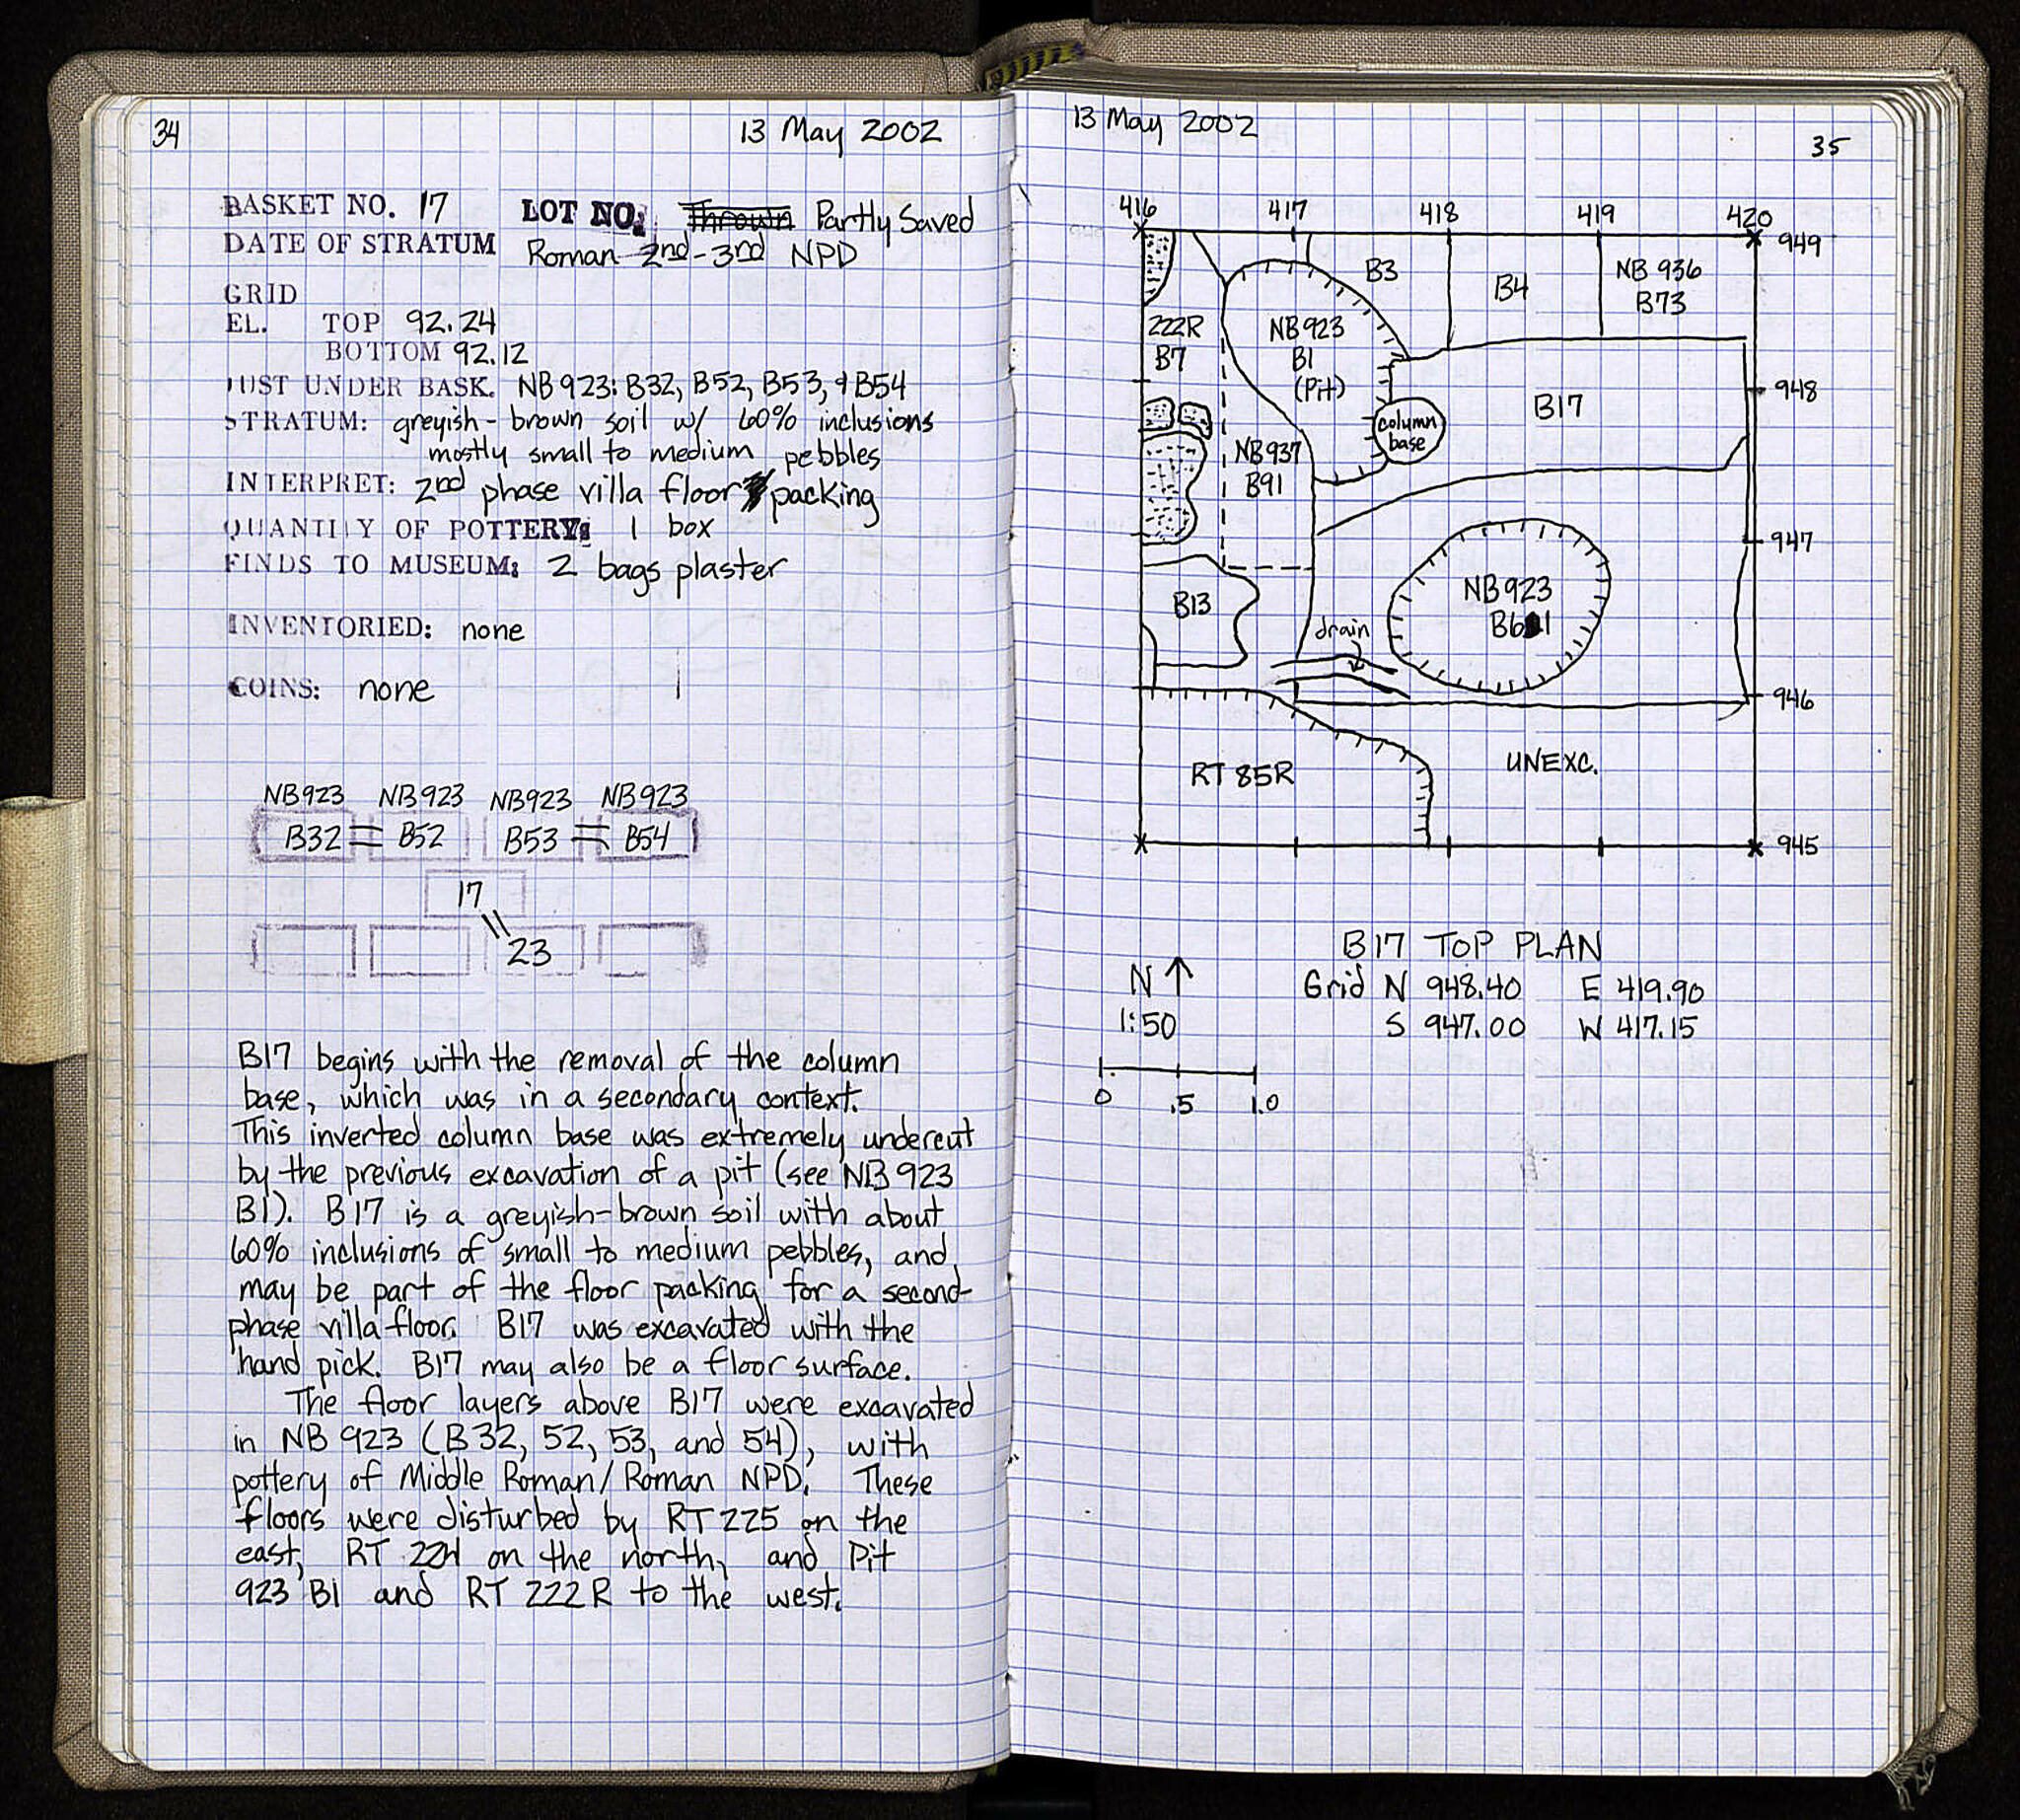 34
13 May 2002
BASKET NO. 17 LOT NO: Thrown Partly Saved
DATE OF STRATUM Roman 2nd-3rd NPD
GRID
EL. TOP 92.24
BOTTOM 92.12
JUST UNDER BASK. NB923: B32, B52, B53, & B54
STRATUM: greyish-brown soil w/ 60% inclusions
mostly small to medium pebbles
INTERPRET: 2nd phase villa floor packing
QUANTITY OF POTTERY: 1 box
FINDS TO MUSEUM: 2 bags plaster
INVENTORIED: none
COINS: none
NB923 NB923 NB923 NB923
B32 = B52 B53 = B54
17
23
B17 begins with the removal of the column
base, which was in a secondary context.
This inverted column base was extremely undercut
by the previous excavation of a pit (see NB923
B1). B17 is a greyish-brown soil with about
60% inclusions of small to medium pebbles, and
may be part of the floor packing for a second-
phase villa floor. B17 was excavated with the
hand pick. B17 may also be a floor surface.
The floor layers above B17 were excavated
in NB 923 (B32, 52, 53, and 54), with
pottery of Middle Roman/Roman NPD. These
floors were disturbed by RT 225 on the
east, RT on the north, and Pit
923 B1 and RT 222R to the west.
13 May 2002
35
416 417 418 419 420
949
B3
B4
NB 936
B73
222R
B7
NB923
B1
(Pit)
948
B17
column
base
NB937
B91
947
NB923
B13
drain
946
RT 85R
UNEXC.
945
B17 TOP PLAN
N ↑
Grid N 948.40 E 419.90
1:50
S 947.00 W 417.15
0 .5 1.0